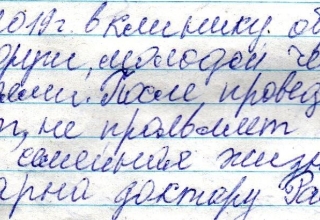 2019г. в клинику об
други, молодой че
ами. После провед
т, не проявляет
, семейная жизн
арна доктору Га